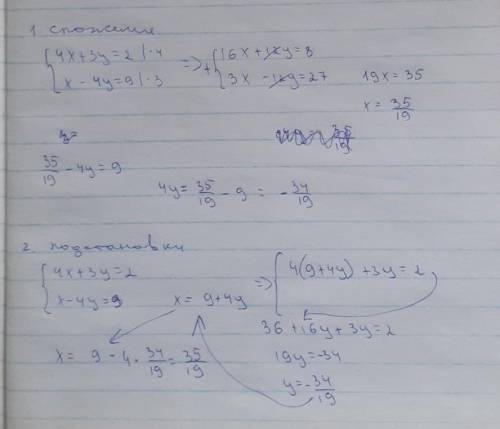 1 сложения
{4x+3y=2 |·4
{x-4y=9 |·3
=> +{16x+12y=8
{3x-12y=27
19x=35
x=35/19
y=
35/19-4y=9
4y=35/19-9=-34/19
2 подстановки
{4x+3y=2
{x-4y=9
x=9+4y
=> {4(9+4y)+3y=2
36+16y+3y=2
19y=-34
y=-34/19
x=9-4·34/19=35/19